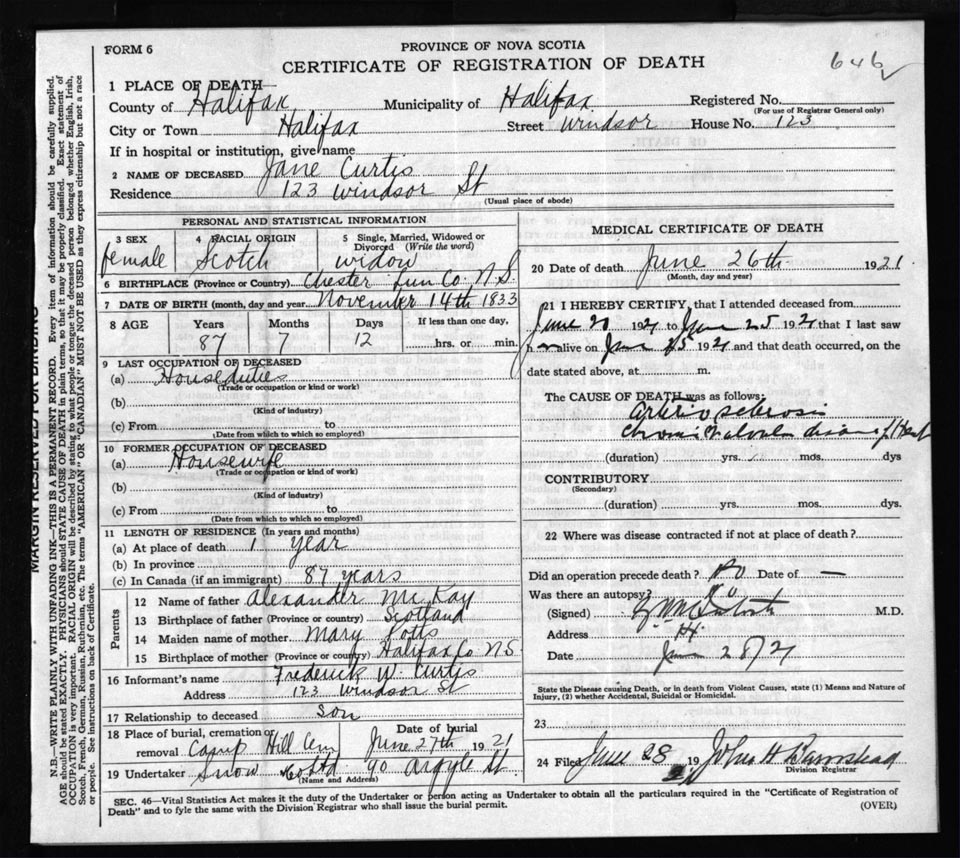 FORM 6
PROVINCE OF NOVA SCOTIA
CERTIFICATE OF REGISTRATION OF DEATH
646
1 PLACE OF DEATH
County of Halifax Municipality of Halifax Registered No.
(For use of Registrar General only)
City or Town Halifax Street Windsor House No. 123
If in hospital or institution, give name
2 NAME OF DECEASED Jane Curtis
Residence 123 Windsor St
(Usual place of abode)
PERSONAL AND STATISTICAL INFORMATION
3 SEX 4 RACIAL ORIGIN 5 Single, Married, Widowed or Divorced (Write the word)
female Scotch widow
6 BIRTHPLACE (Province or Country) Chester Lun Co. N.S.
7 DATE OF BIRTH (month, day and year) November 14th 1833
8 AGE Years Months Days If less than one day,
87 7 12 hrs. or min.
9 LAST OCCUPATION OF DECEASED
(a) House duties
(Trade or occupation or kind or work)
(b)
(Kind of industry)
(c) From to
(Date from which to which so employed)
10 FORMER OCCUPATION OF DECEASED
(a) Housewife
(Trade or occupation or kind of work)
(b)
(Kind of industry)
(c) From to
(Date from which to which so employed)
11 LENGTH OF RESIDENCE (In years and months)
(a) At place of death 1 year
(b) In province
(c) In Canada (if an immigrant) 87 years
Parents
12 Name of father Alexander McKay
13 Birthplace of father (Province or country) Scotland
14 Maiden name of mother Mary Potts
15 Birthplace of mother (Province or country) Halifax Co N.S.
16 Informant's name Frederick W. Curtis
Address 123 Windsor St
17 Relationship to deceased son
18 Place of burial, cremation or removal Camp Hill Cem Date of burial June 27th 1921
19 Undertaker Snow Co Ltd 90 Argyle St
(Name and Address)
MEDICAL CERTIFICATE OF DEATH
20 Date of death June 26th 1921
(Month, day and year)
21 I HEREBY CERTIFY, that I attended deceased from
June 20 1921 to June 25 1921 that I last saw
alive on June 25 1921 and that death occurred, on the
date stated above, at m.
The CAUSE OF DEATH was as follows:
Arterio sclerosis
Chronic Valvular disease of Heart
(duration) yrs. mos. dys
CONTRIBUTORY
(Secondary)
(duration) yrs. mos. dys.
22 Where was disease contracted if not at place of death?
Did an operation precede death? No Date of —
Was there an autopsy? No
(Signed) M.D.
Address
Date June 28/21
State the Disease causing Death, or in death from Violent Causes, state (1) Means and Nature of
Injury, (2) whether Accidental, Suicidal or Homicidal.
23
24 Filed June 28 19
Division Registrar
SEC. 46—Vital Statistics Act makes it the duty of the Undertaker or person acting as Undertaker to obtain all the particulars required in the "Certificate of Registration of
Death" and to fyle the same with the Division Registrar who shall issue the burial permit.
(OVER)
MARGIN RESERVED FOR BINDING
N.B.—WRITE PLAINLY WITH UNFADING INK—THIS IS A PERMANENT RECORD. Every item of information should be carefully supplied.
AGE should be stated EXACTLY. PHYSICIANS should STATE CAUSE OF DEATH in plain terms, so that it may be properly classified. Exact statement of
OCCUPATION is very important. RACIAL ORIGIN will be described by stating to what people or tongue the deceased person belonged whether English, Irish,
Scotch, French, German, Russian, Ruthenian, etc. The terms "AMERICAN" OR "CANADIAN" MUST NOT BE USED as they express citizenship but not a race
or people. See instructions on back of Certificate.